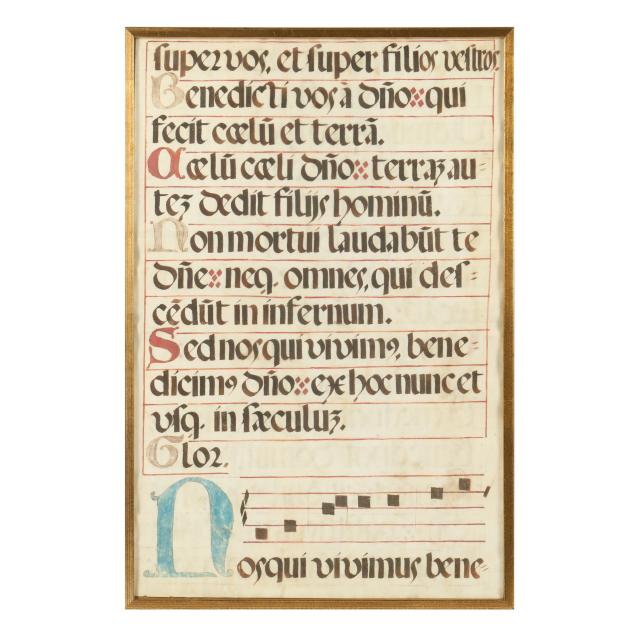 super vos, et super filios vestros.
Benedicti vos à dño: qui
fecit cœlũ et terrã.
Cælũ cœli dño: terraȝ au-
teȝ dedit filijs hominũ.
Non mortui laudabũt te
dñe: neq. omnes, qui des-
cẽdũt in infernum.
Sed nos qui vivimꝰ, bene-
dicimꝰ dño: ex hoc nunc et
usq. in sæculuȝ.
Glor.
Nos qui vivimus bene-